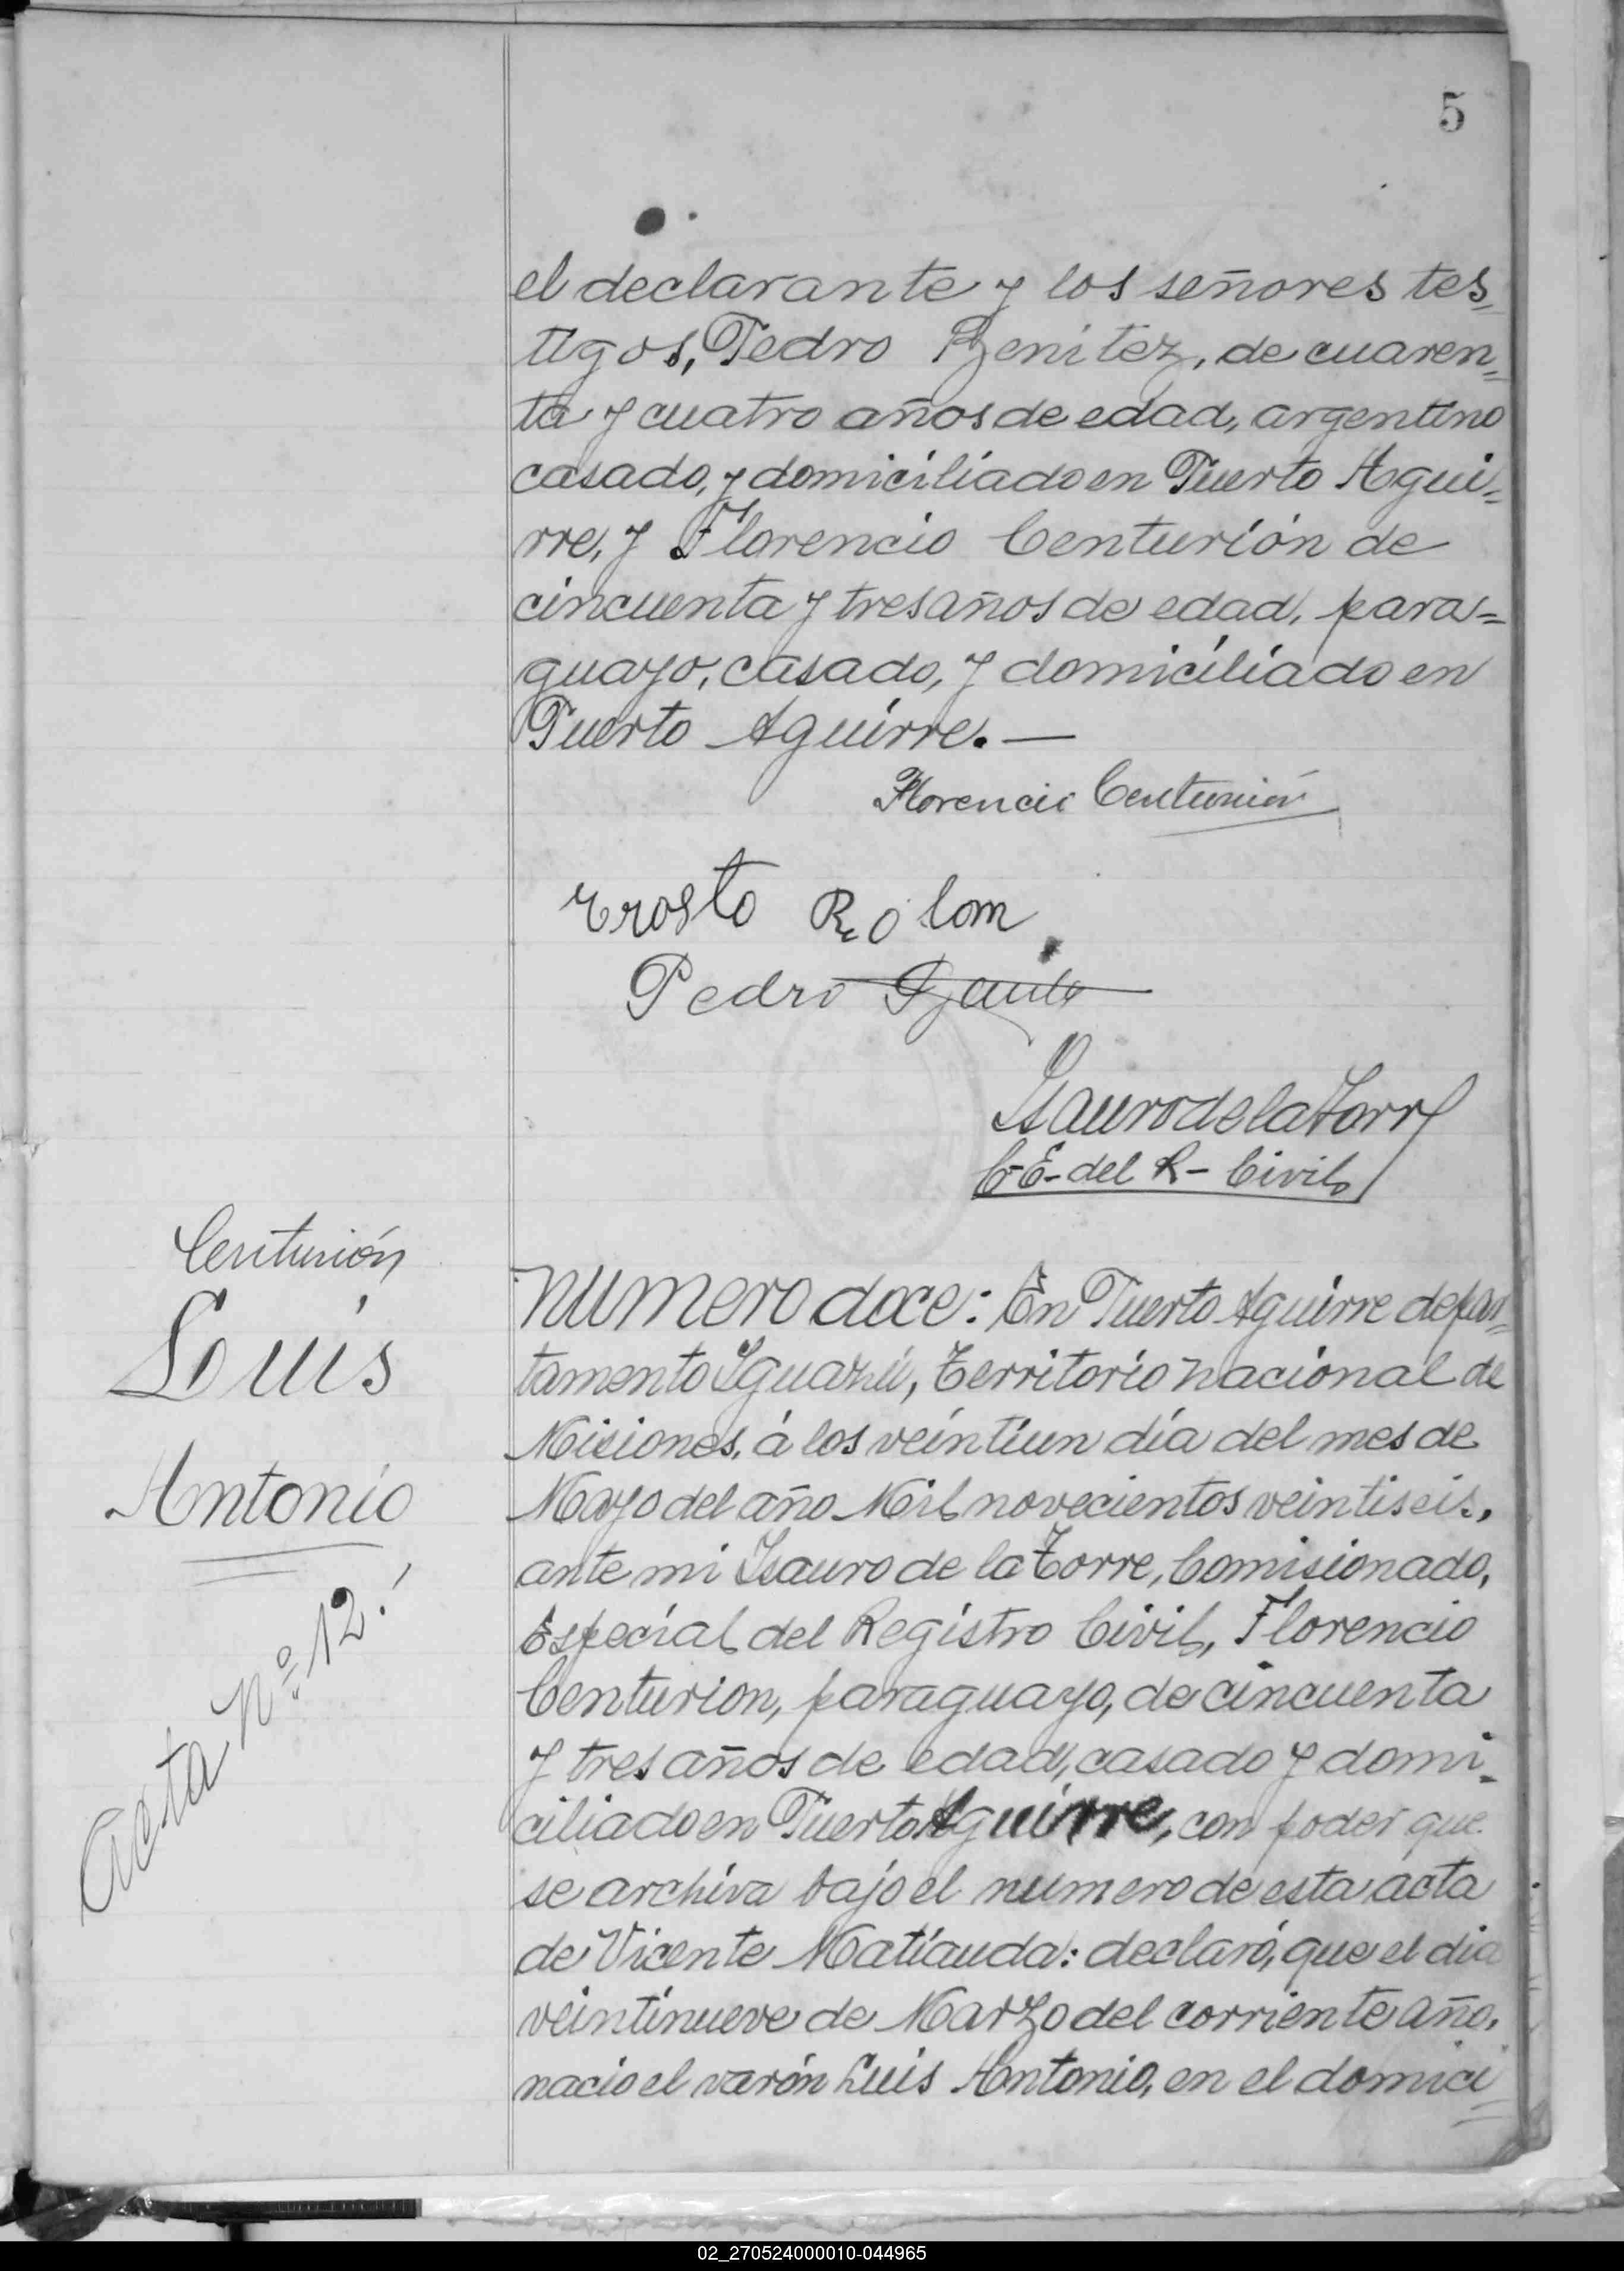 5
el declarante y los señores tes=
tigos, Pedro Benitez, de cuaren=
ta y cuatro años de edad, argentino
casado, y domiciliado en Puerto Agui=
rre, y Florencio Centurión de
cincuenta y tres años de edad, para=
guayo, casado, y domiciliado en
Puerto Aguirre. —
Florencio Centurión
Rolom
Pedro
Isauro de la Torre
C-E- del R- Civil
Centurión
Louis
Antonio
Acta Nº 12.!
Numero doce: En Puerto Aguirre depar=
tamento Iguazú, Territorio Nacional de
Misiones, á los veintiun día del mes de
Mayo del año Mil novecientos veintiseis,
ante mi Isauro de la Torre, Comisionado,
Especial del Registro Civil, Florencio
Centurion, paraguayo, de cincuenta
y tres años de edad, casado y domi=
ciliado en Puerto Aguirre, con poder que
se archiva bajo el numero de esta acta
de Vicente Matiauda: declaró, que el dia
veintinueve de Marzo del corriente año,
nacio el varón Luis Antonio, en el domici=
02_270524000010-044965